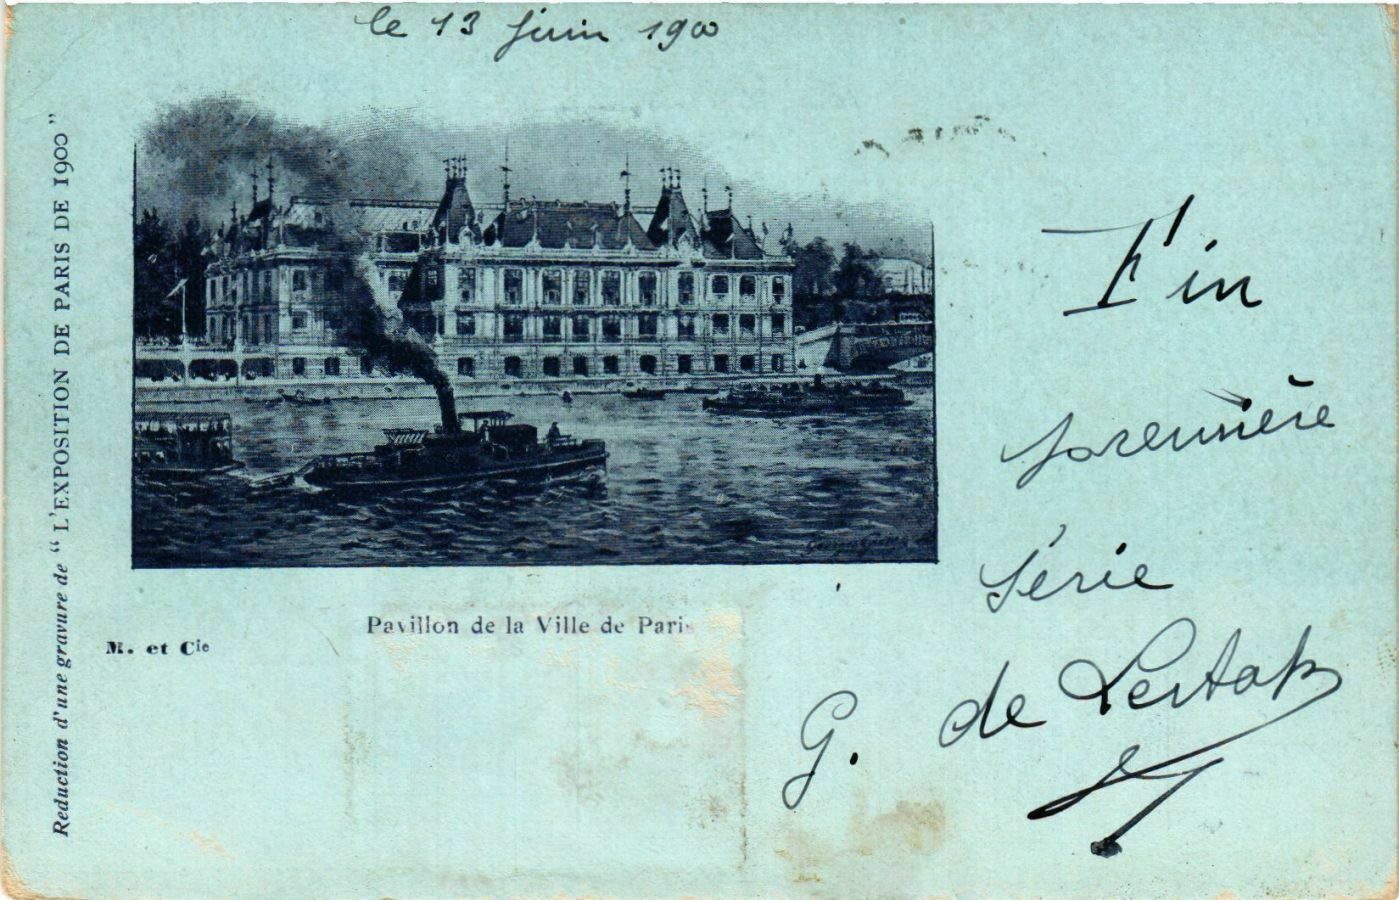 le 13 juin 1900
Reduction d'une gravure de “ L'EXPOSITION DE PARIS DE 1900 ”
Fin
première
Série
Pavillon de la Ville de Paris
M. et Cie
G. de